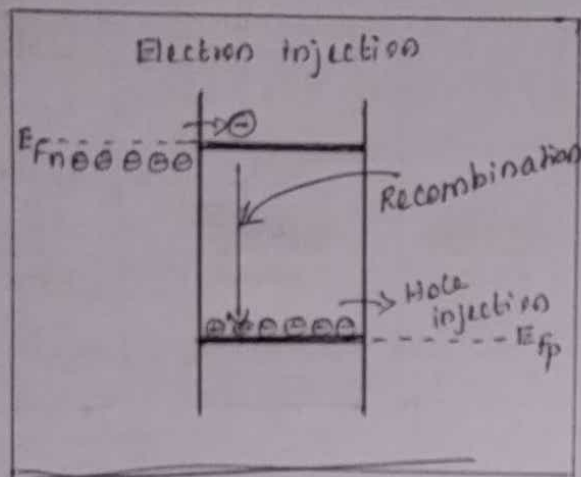 Election injection
Efn
Recombination
Hole
injection
Efp